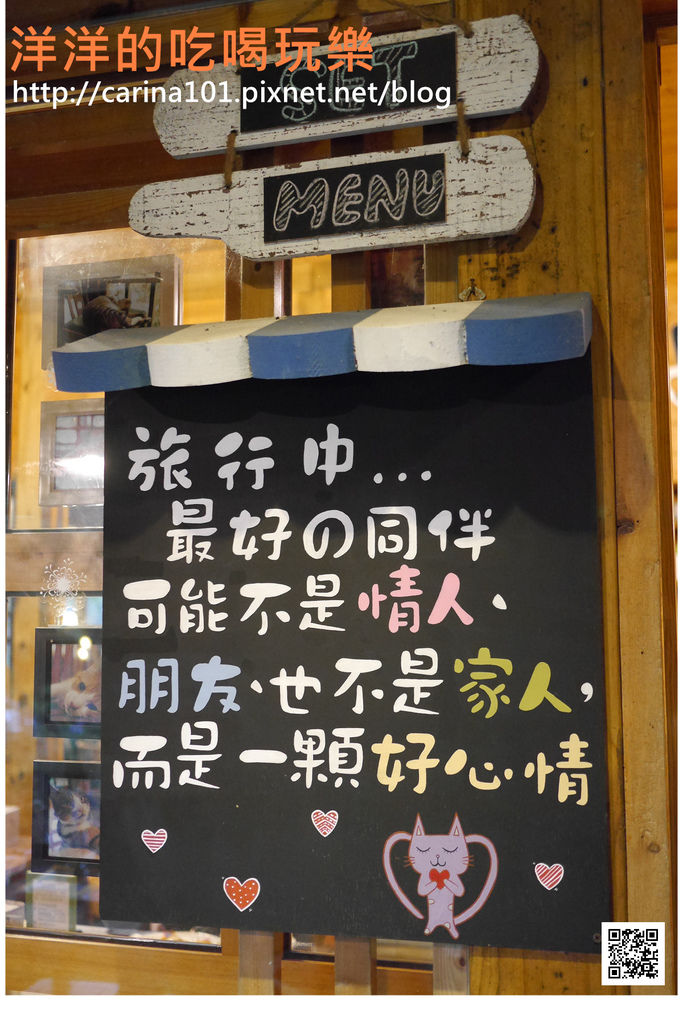 洋洋的吃喝玩樂
http://carina101.pixnet.net/blog
SET
MENU
旅行中...
最好の同伴
可能不是情人、
朋友、也不是家人,
而是一顆好心情